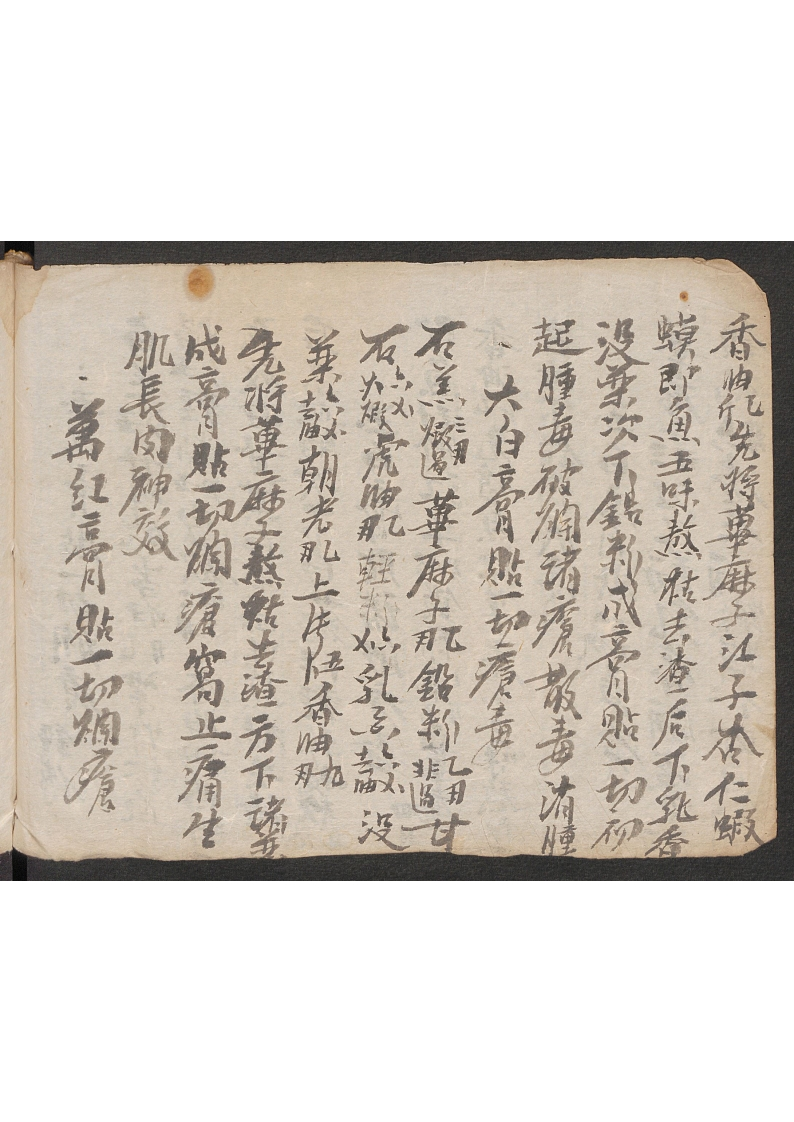 香油斤先將萆麻子江子杏仁蝦
蟆即魚五味熬枯去渣后下乳香
没藥次下鉛粉成膏貼一切初
起腫毒破爛諸瘡散毒消腫
大白膏貼一切瘡毒
石羔煅過萆麻子鉛粉乙两甘
石火煅虎油輕粉乳香六分去油没
藥去油朝老上片香油九两
先將萆麻子熬帖去渣方下諸藥
成膏貼一切爛瘡窩止痛生
肌長肉神效
萬紅膏貼一切爛瘡